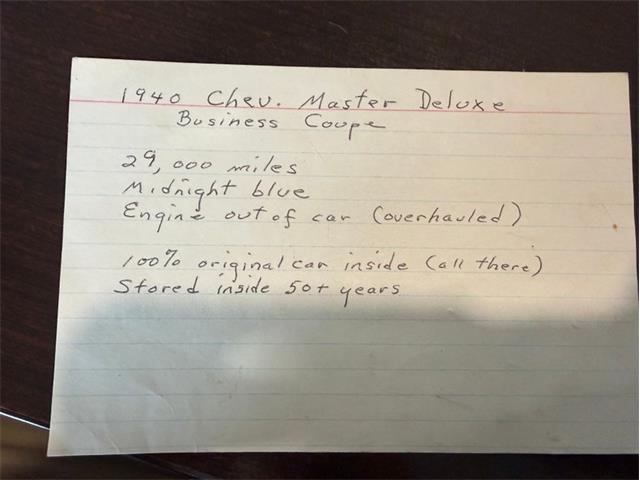 1940 Chev. Master Deluxe
Business Coupe
29,000 miles
Midnight blue
Engine out of car (overhauled)
100% original car inside (all there)
Stored inside 50+ years